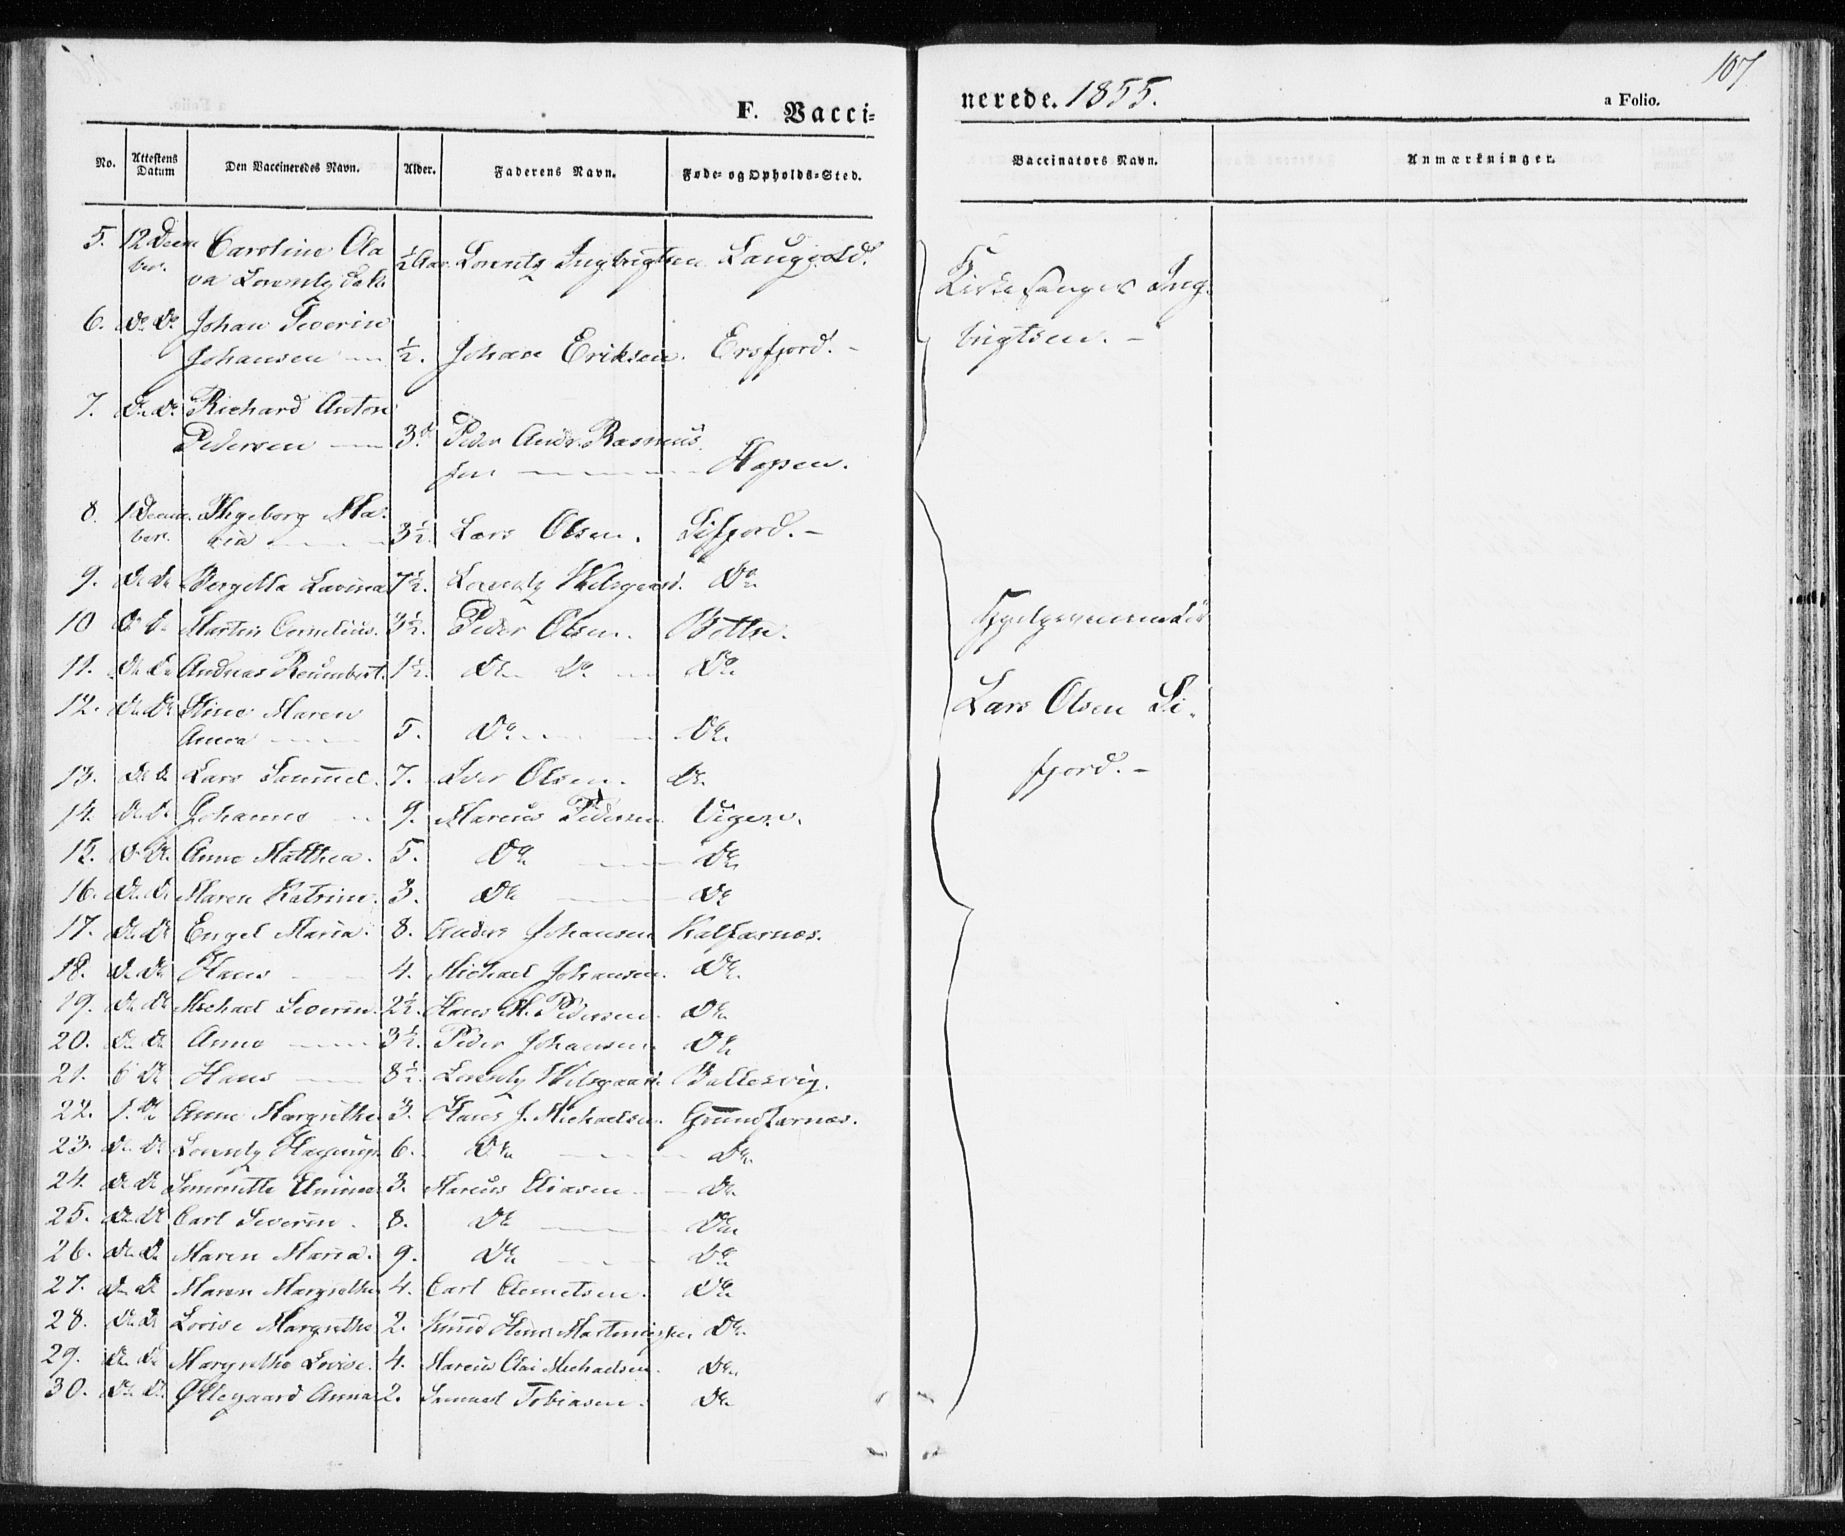 F. Vacci=
nerede. 1855.
107
a Folio.
No.
Attestens Datum
Den Vaccineredes Navn.
Alder.
Faderens Navn.
Føde- og Opholds-Sted.
Vaccinators Navn.
Anmærkninger.
5. 12 Decem Caroline Ola
ber. va Lorentz Datr. ½ Aar. Lorentz Ingbrigtsen
6. Do Do Johan Severin
Johansen ½. Johan Eriksen. Ersfjord. -
7. Do Do Richard Anton
Pedersen 3 Peder Andr. Rasmus
sen Hopen.
8. 1 Decem. Ingeborg Ma-
ber. ria 3½. Lars Olsen. Sifjord. -
9. Do Do Bergitta Lavina 7½. Lorentz Do
10 Do Do Martin Cornelius. 3½. Peder Olsen. Botten.
11. Do Do Andreas 1½. Do Do Do
12. Do Do Stine Maren
Anna 5. Do Do
13. Do Do Lars Samuel. 7. Iver Olsen. Do.
14. Do Do Johannes 9. Marcus Pedersen
15. Do Do Anne Mathea. 5. Do Do
16. Do Do Maren Katrine. 3. Do Do
17. Do Do Engel Maria. 8. Anders Johansen Kalfarnes.
18. Do Do Hans 4. Michael Johansen. Do.
19. Do Do Michael Severin. 2½. Hans M. Pedersen. Do
20. Do Do Anne 3½. Peder Johansen Do
21. 6 Do Hans 8½. Lorentz Ballesvig.
22. 1. Do Anne Margrethe 3. Hans J. Michaelsen. Grundfarnæs.
23. Do Do Lorentz 6. Do Do
24. Do Do 3. Marcus Eliasen Do
25. Do Do Carl Severin. 8. Do Do
26. Do Do Maren Maria. 9. Do Do
27. Do Do Maren Margrethe 4. Carl Clemetsen. Do
28. Do Do Lovise Margrethe 2. Knud Do
29. Do Do Margrethe Lovise. 4. Marcus Michaelsen. Do
30. Do Do Øllegaard Anna 2. Samuel Tobiasen. Do
Kirkesanger Ing-
brigtsen. -
Lars Olsen Si-
fjord. -